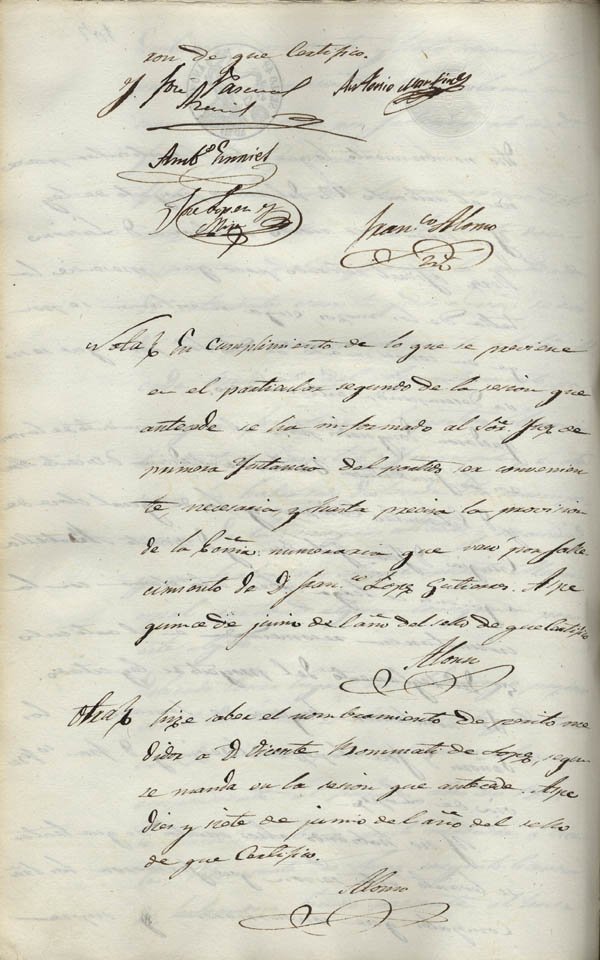 ron de que Certifico.
J. José Pascual Antonio Martinez
Amb.º
José Lopez y
Fran.co Alonso
Nota En cumplimiento de lo que se previene
en el particular segundo de la sesion que
antecede se ha informado al Sor. Juez de
primera Instancia del partido ser convenien
te necesaria y hasta precisa la provision
de la numeraria que vacó por falle
cimiento de D. Fran.co Lopez Gutierres. Aspe
quince de junio del año del sello de que Certifico
Alonso
Otra hize saber el nombramiento de perito me
didor á D. Vicente de Lopez, segun
se manda en la sesion que antecede. Aspe
diez y siete de junio del año del sello
de que Certifico.
Alonso